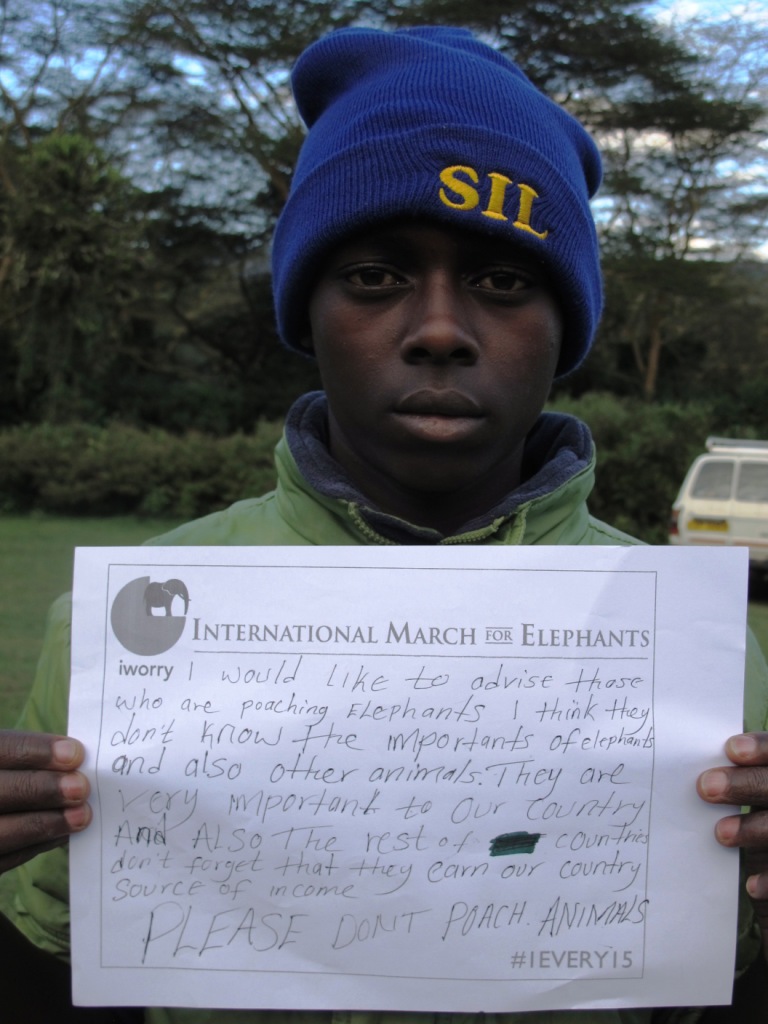 SIL
INTERNATIONAL MARCH FOR ELEPHANTS
iworry
I would like to advise those
who are poaching Elephants I think they
don't know the importants of elephants
and also other animals. They are
Very important to our country
And Also The rest of countries
don't forget that they earn our country
Source of income
PLEASE DON'T POACH ANIMALS
#1EVERY15